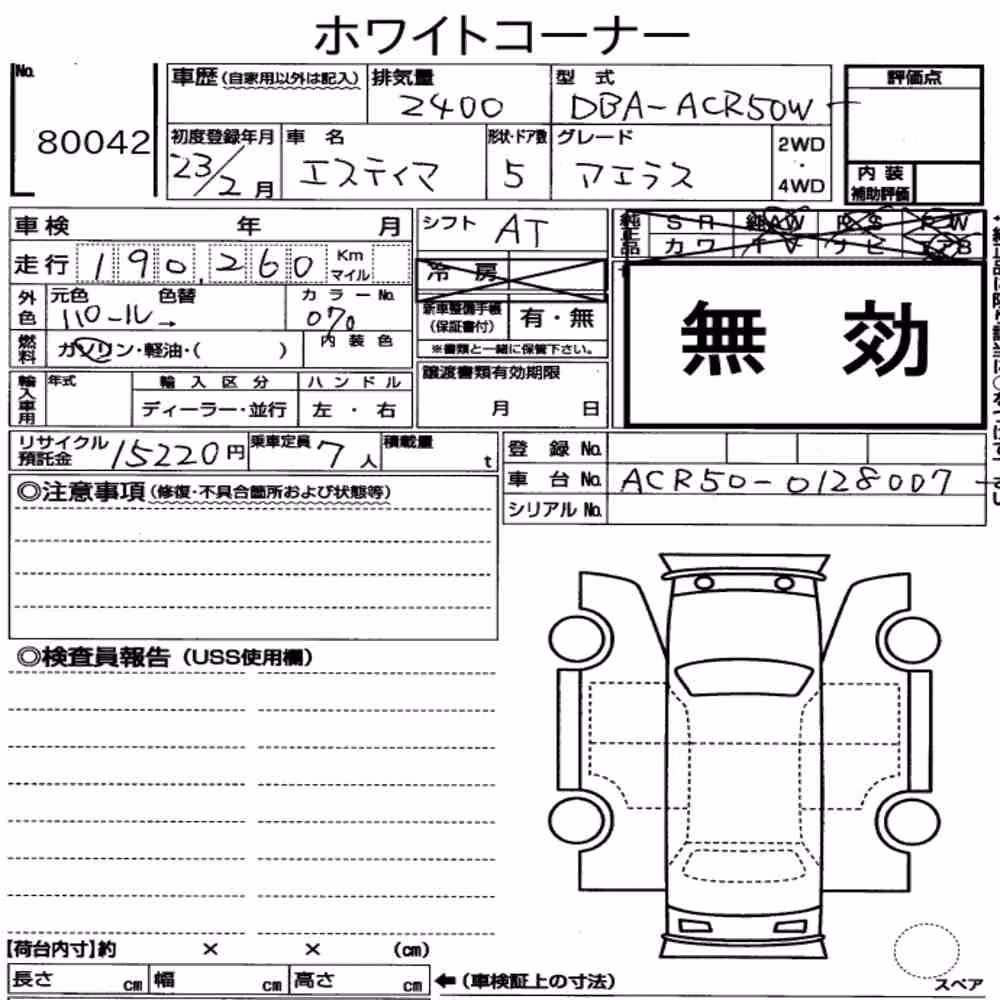 ホワイトコーナー
No. 80042
車歴(自家用以外は記入) 排気量 2400 型式 DBA-ACR50W 評価点
初度登録年月 23/2月 車名 エスティマ 形状・ドア数 5 グレード アエラス 2WD・4WD 内装補助評価
車検 年 月 シフト AT 純正品 SR 純AW PS PW
カワ TV ナビ
走行 190,260 Km マイル 冷房
外色 元色 パール 色替→ カラーNo. 070 新車整備手帳(保証書付) 有・無
無効
燃料 ガソリン・軽油・( ) 内装色 ※書類と一緒に保管下さい。
輸入車用 年式 輸入区分 ハンドル 譲渡書類有効期限
ディーラー・並行 左・右 月 日
リサイクル預託金 15220円 乗車定員 7人 積載量 t 登録No.
◎注意事項(修復・不具合箇所および状態等) 車台No. ACR50-0128007
シリアルNo.
◎検査員報告(USS使用欄)
【荷台内寸】約 × × (cm)
長さ cm 幅 cm 高さ cm ←(車検証上の寸法)
スペア